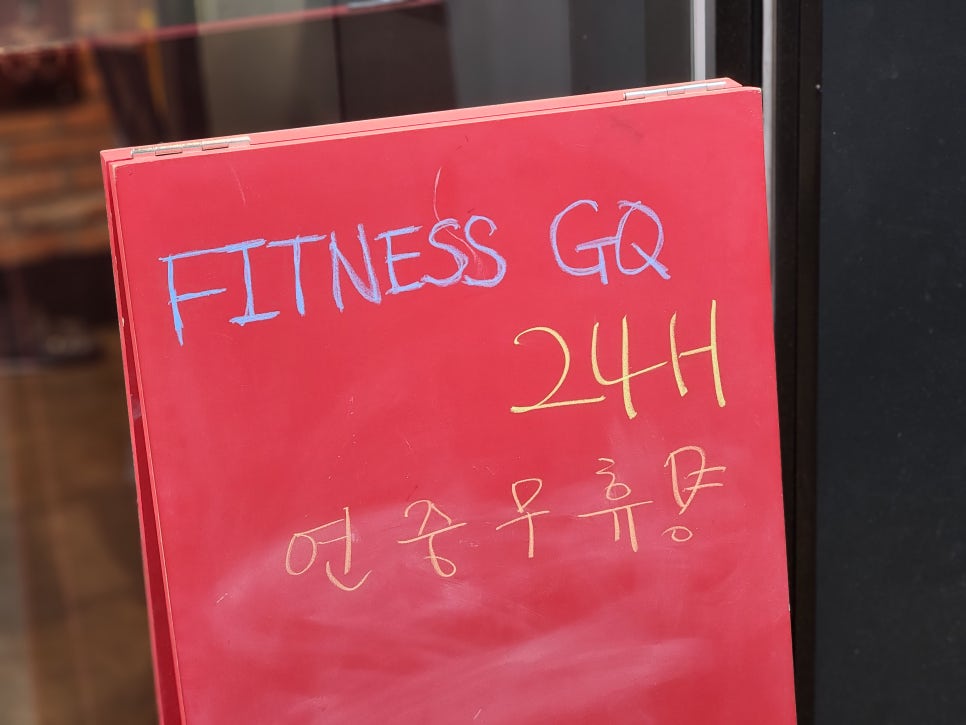 FITNESS GQ
24H
연중무휴